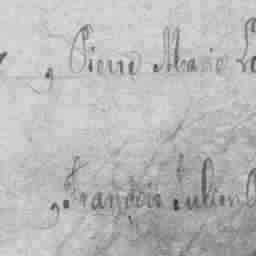 , Pierre Marie Le
, François Julien